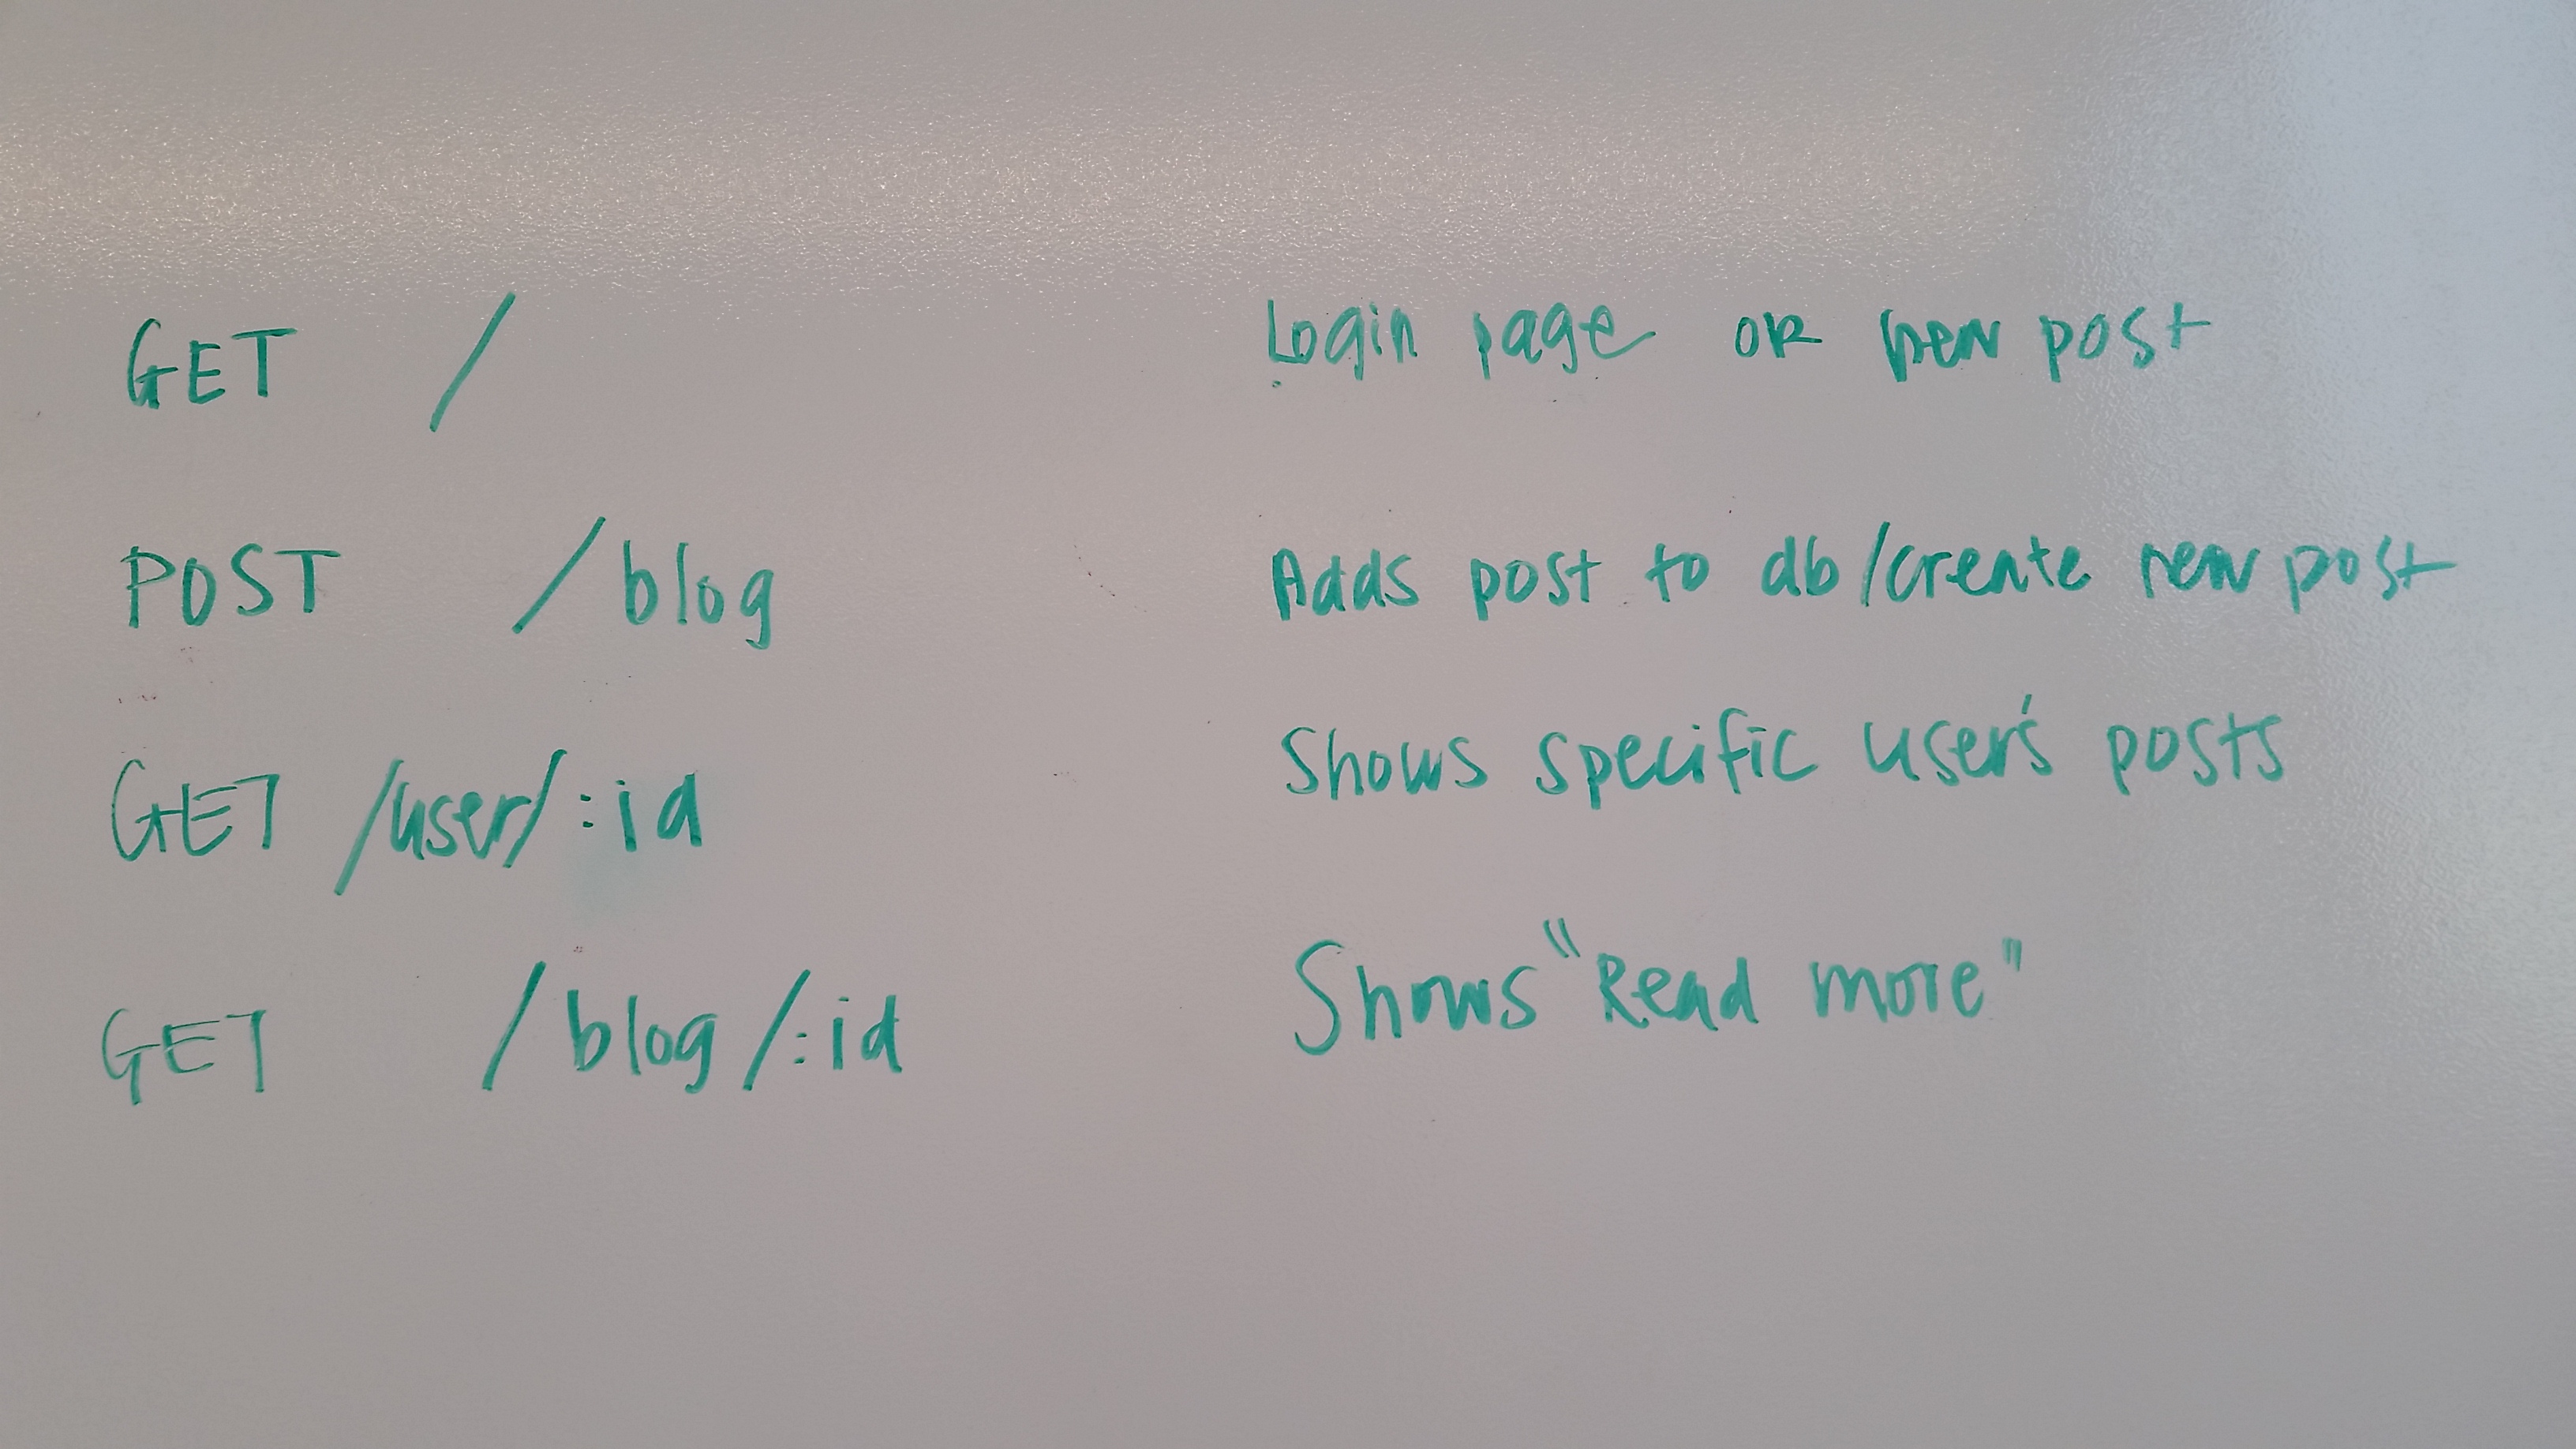 GET / Login page OR new post
POST /blog Adds post to db/create new post
GET /user/:id Shows specific user's posts
GET /blog/:id Shows "Read more"